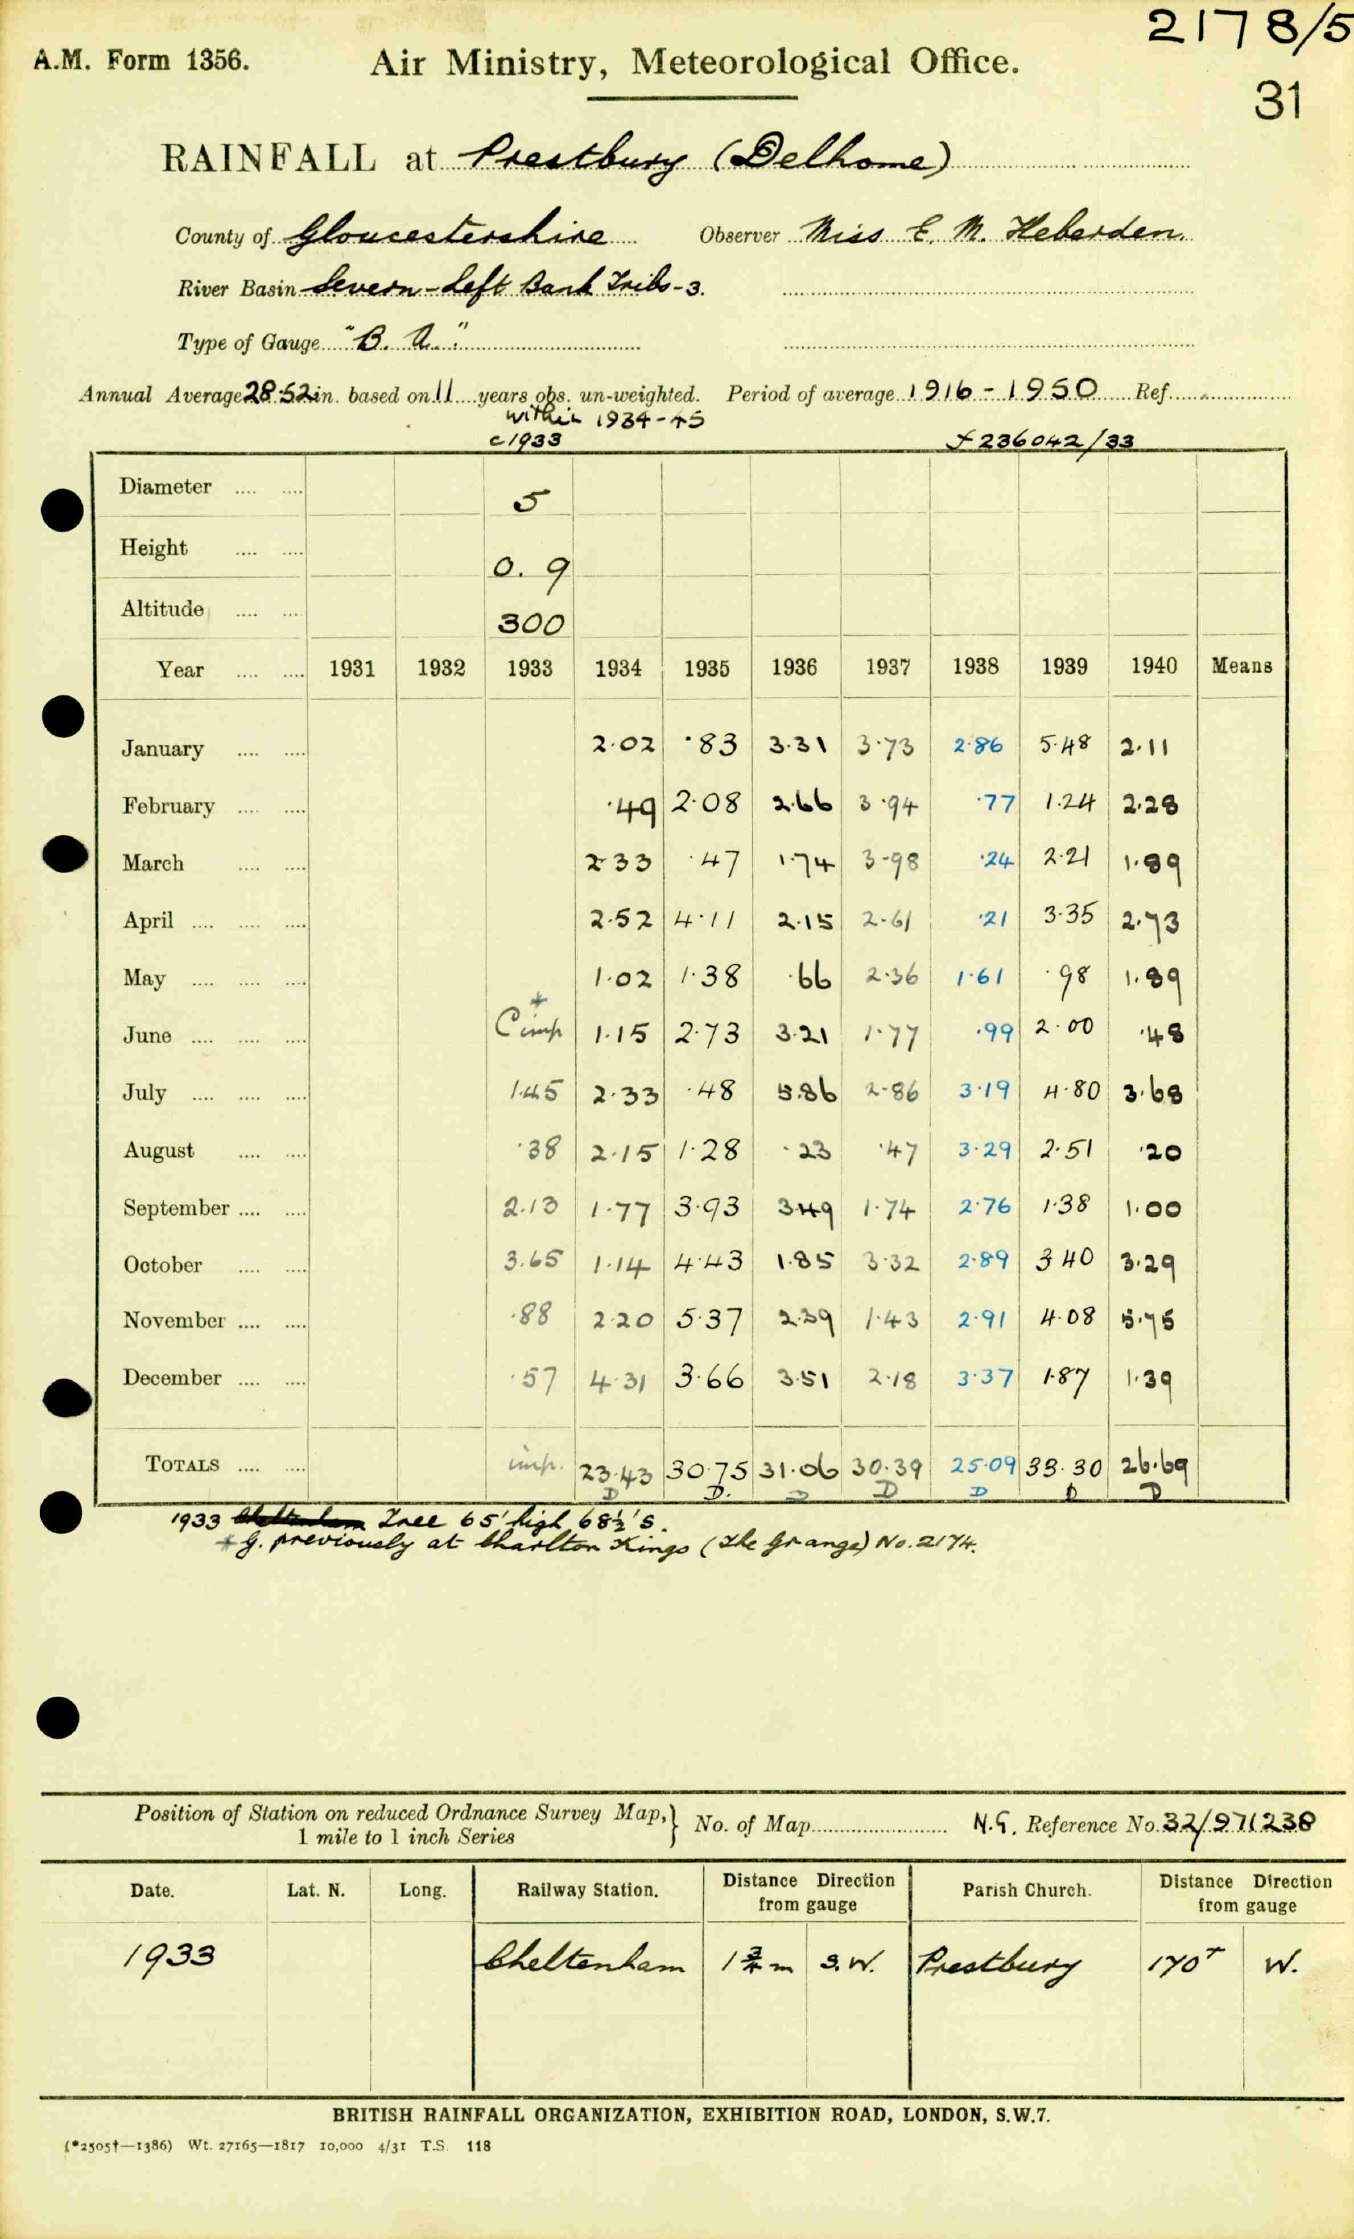 2178/5
A.M. Form 1356. Air Ministry, Meteorological Office.
31
RAINFALL at Prestbury (Delhome)
County of Gloucestershire Observer Miss E. M. Heberden.
River Basin Severn - Left Bank Tribs - 3.
Type of Gauge "B. A."
Annual Average 28.52 in. based on 11 years obs. un-weighted. Period of average 1916 - 1950 Ref.
within 1934-45
c 1933 f 236042/33
Diameter 5
Height 0. 9
Altitude 300
Year 1931 1932 1933 1934 1935 1936 1937 1938 1939 1940 Means
January 2.02 .83 3.31 3.73 2.86 5.48 2.11
February .49 2.08 2.66 3.94 .77 1.24 2.28
March 2.33 .47 1.74 3.98 .24 2.21 1.89
April 2.52 4.11 2.15 2.61 .21 3.35 2.73
May 1.02 1.38 .66 2.36 1.61 .98 1.89
+
June C imp 1.15 2.73 3.21 1.77 .99 2.00 .48
July 1.45 2.33 .48 5.86 2.86 3.19 4.80 3.68
August .38 2.15 1.28 .23 .47 3.29 2.51 .20
September 2.13 1.77 3.93 3.49 1.74 2.76 1.38 1.00
October 3.65 1.14 4.43 1.85 3.32 2.89 3.40 3.29
November .88 2.20 5.37 2.39 1.43 2.91 4.08 5.75
December .57 4.31 3.66 3.51 2.18 3.37 1.87 1.39
TOTALS imp. 23.43 30.75 31.06 30.39 25.09 33.30 26.69
D D. D D D D D
1933 Cheltenham Tree 65' high 68½' S.
+ G. previously at Charlton Kings (The Grange) No. 2174.
Position of Station on reduced Ordnance Survey Map,} No. of Map N.G. Reference No. 32/971238
1 mile to 1 inch Series
Date. Lat. N. Long. Railway Station. Distance Direction from gauge Parish Church. Distance Direction from gauge
1933 Cheltenham 1¾ m S.W. Prestbury 170ʸ W.
BRITISH RAINFALL ORGANIZATION, EXHIBITION ROAD, LONDON, S.W.7.
(*2505†—1386) Wt. 27165—1817 10,000 4/31 T.S. 118